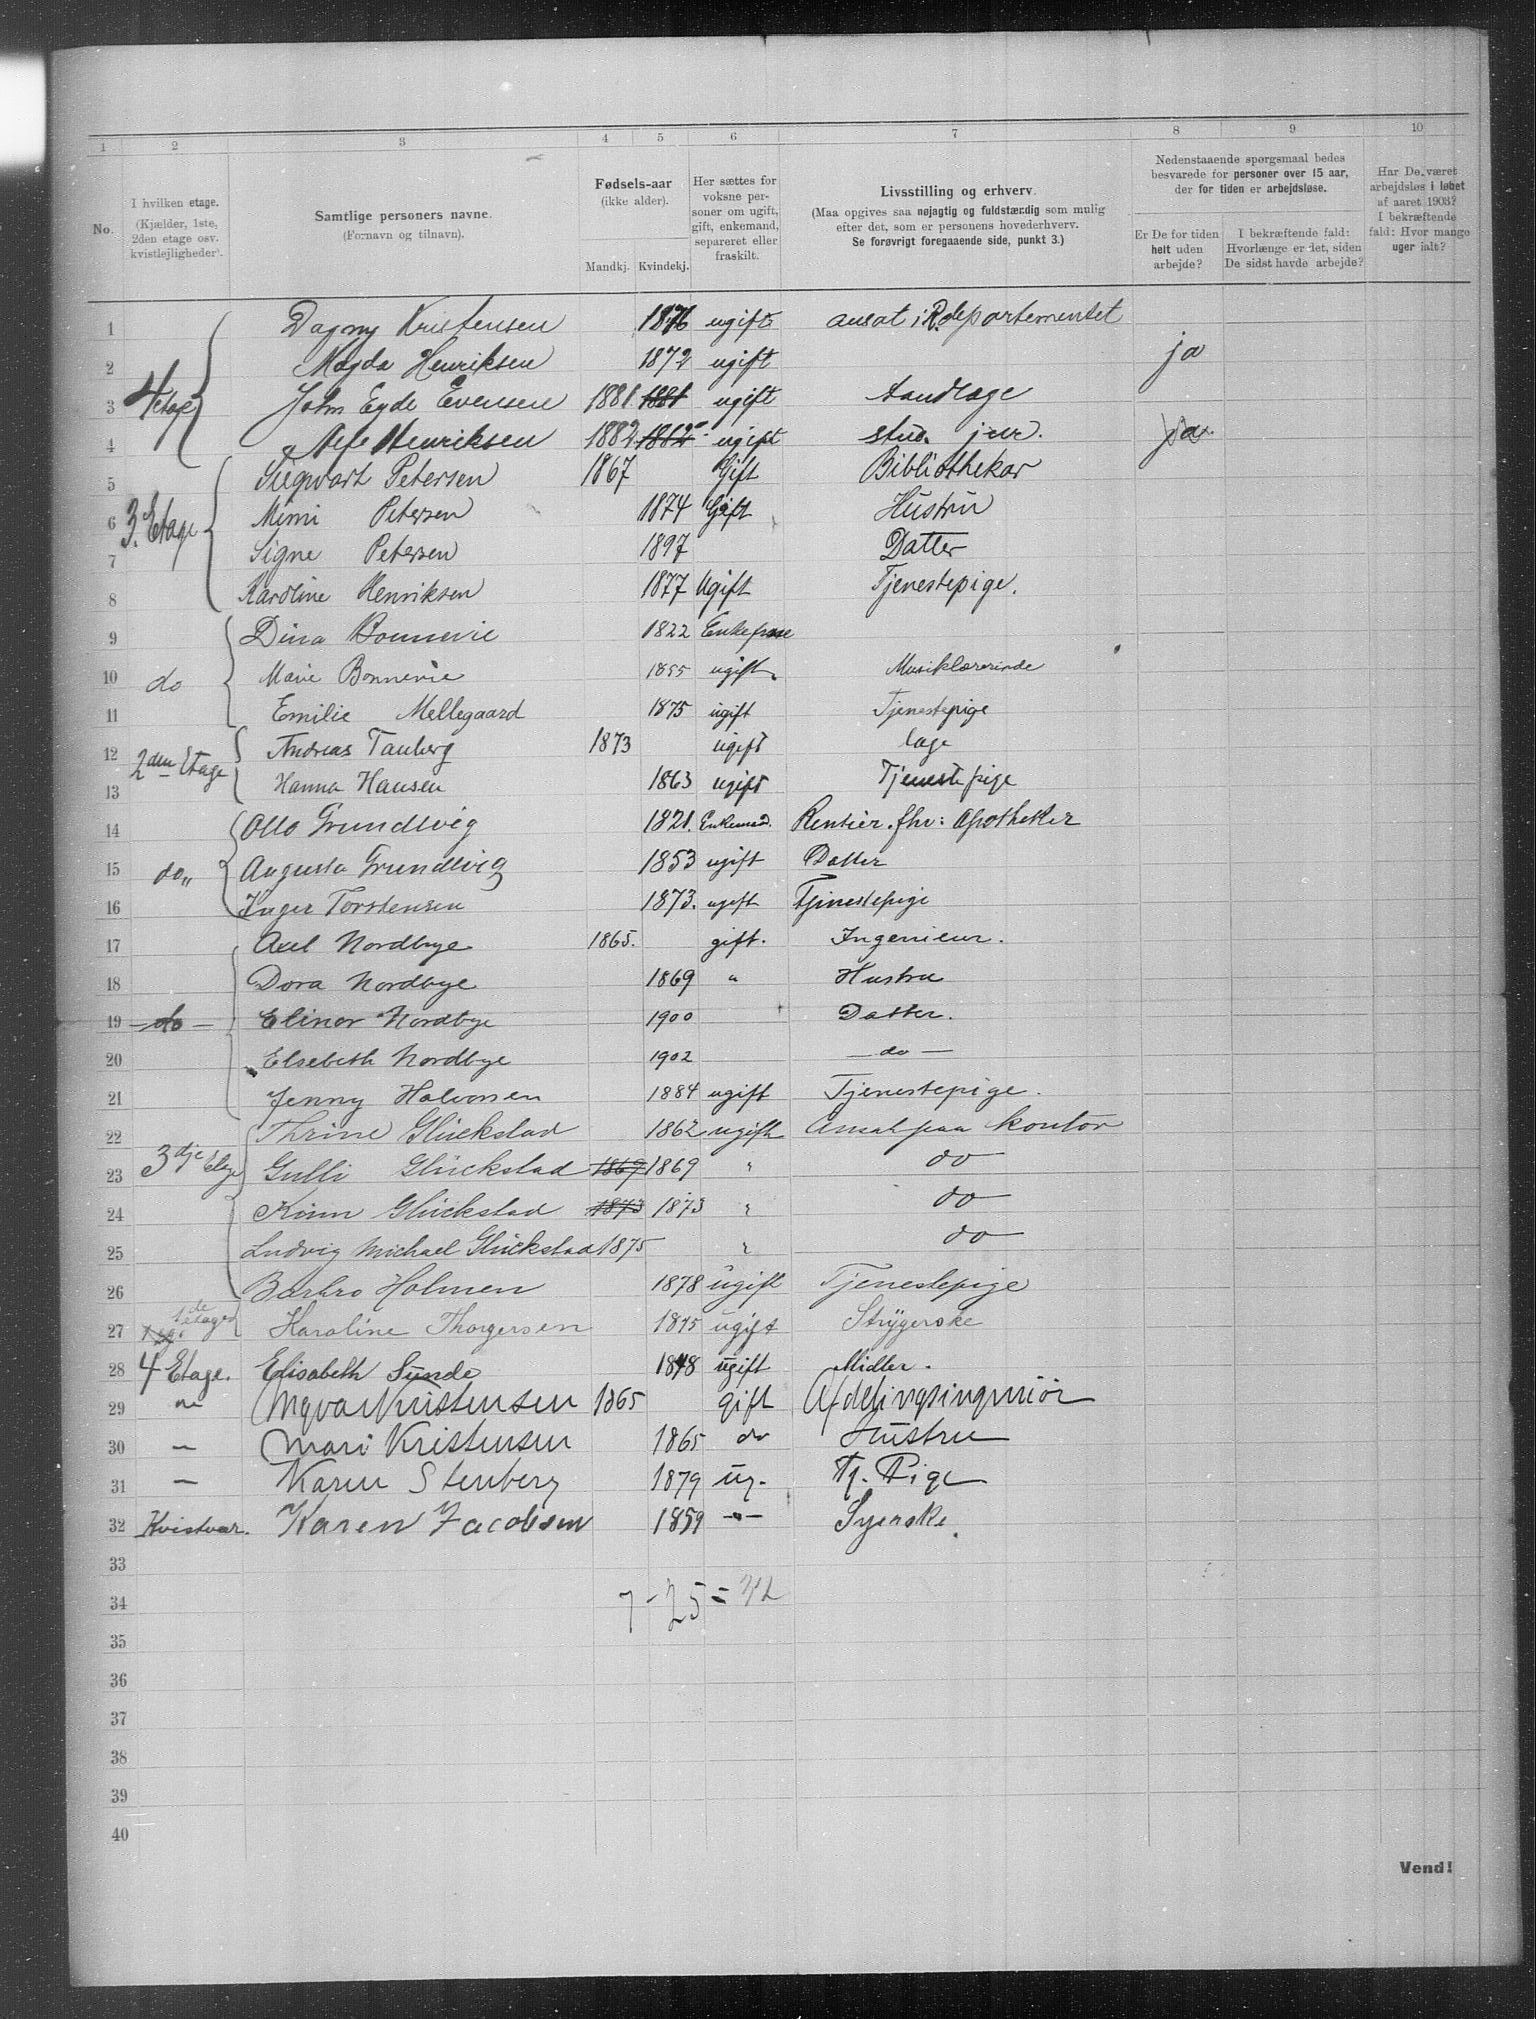 1 2 3 4 5 6 7 8 9 10
No.
I hvilken etage.
(Kjælder, 1ste,
2den etage osv.
kvistlejligheder).
Samtlige personers navne.
(Fornavn og tilnavn).
Fødsels-aar
(ikke alder).
Mandkj. Kvindekj.
Her sættes for
voksne per-
soner om ugift,
gift, enkemand,
separeret eller
fraskilt.
Livsstilling og erhverv.
(Maa opgives saa nøjagtig og fuldstændig som mulig
efter det, som er personens hovederhverv.
Se forøvrigt foregaaende side, punkt 3.)
Nedenstaaende spørgsmaal bedes
besvarede for personer over 15 aar,
der for tiden er arbejdsløse.
Er De for tiden
helt uden
arbejde?
I bekræftende fald:
Hvorlænge er det, siden
De sidst havde arbejde?
Har De været
arbejdsløs i løbet
af aaret 1903?
I bekræftende
fald: Hvor mange
uger ialt?
1 Dagny Kristensen 1876 ugift ansat i R.departementet
2 Magda Henriksen 1872 ugift ja
3 4 etage John Eyde Evensen 1881 1881 ugift tandlæge
4 Alf Henriksen 1882 1882 ugift stud. jur. ja
5 Sigvart Petersen 1867 Gift Bibliothekar
6 3. Etage Mimi Petersen 1874 Gift Hustru
7 Signe Petersen 1897 Datter
8 Karoline Henriksen 1877 Ugift Tjenestepige.
9 Dina Bonnevie 1822 Enkefrue
10 do Marie Bonnevie 1855 ugift Musiklærerinde
11 Emilie Mellegaard 1875 ugift Tjenestepige
12 2den Etage Andreas Tauberg 1873 ugift læge
13 Hanna Hansen 1863 ugift Tjenestepige
14 Otto Grundtvig 1821. Enkemd. Rentier. fhv: Apotheker
15 do,, Augusta Grundtvig 1853 ugift Datter
16 Inger Torstensen 1873. ugift Tjenestepige
17 Axel Nordbye 1865. gift. Ingenieur.
18 Dora Nordbye 1869 " Hustru
19 - do - Elinor Nordbye 1900 Datter.
20 Elsebeth Nordbye 1902 - do -
21 Jenny Halvorsen 1884 ugift Tjenestepige.
22 Thrine Glückstad 1862 ugift Ansat paa kontor
23 3dje Etage Gulli Glückstad 1869 1869 " do
24 Kinn Glückstad 1873 1873 " do
25 Ludvig Michael Glückstad 1875 " do
26 Barbro Holmen 1878 ugift Tjenestepige
27 1de etage Karoline Thorgersen 1875 ugift Strygerske
28 4 Etage. Elisabeth Sunde 1848 ugift Midler.
29 " Ingvar Kristensen 1865 gift Afdelingsingeniør
30 - Mari Kristensen 1865 do Hustru
31 - Karen Stenberg 1879 ug. Tj. Pige
32 Kvistvær. Karen Jacobsen 1859 -"- Syerske.
33
34 7 - 25 = 32
35
36
37
38
39
40
Vend!